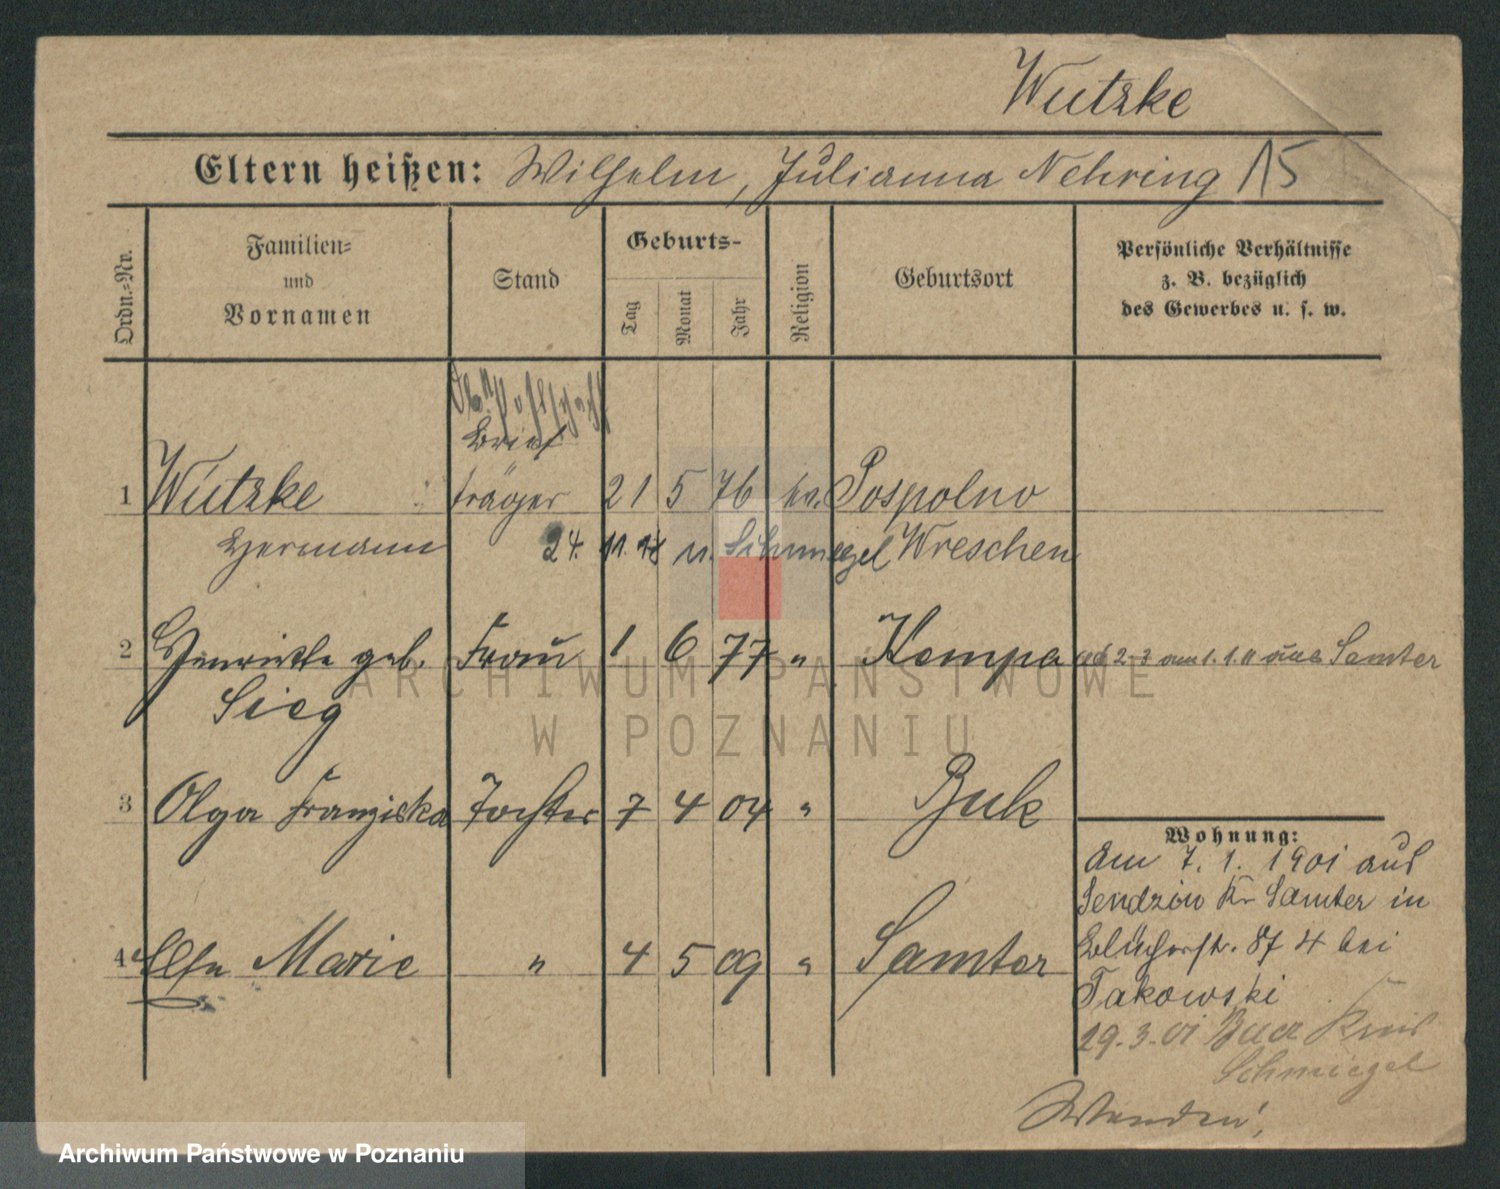 Wutzke
Eltern heißen: Wilhelm, Julianna Nehring 15
Ordn.=Nr.
Familien=
und
Vornamen
Stand
Geburts-
Tag
Monat
Jahr
Religion
Geburtsort
Persönliche Verhältnisse
z. B. bezüglich
des Gewerbes u. s. w.
Brief
1 Wutzke träger 21 5 76 ev. Pospolno
Hermann 24. 11. 18 n. Schmiegel Wreschen
2 Henriette geb. Frau 1 6 77 " Kempa
Sieg
2-3 am 1. 1. 11 aus Samter
3 Olga Franziska Tochter 7 4 04 " Buk
4 Marie " 4 5 09 " Samter
Wohnung:
Am 7. 1. 1901 aus
Sendzin Kr Samter in
Blücherstr. 87 4 bei
Takowski
29.3.01 Kreis
Schmiegel
Wenden!
ARCHIWUM PAŃSTWOWE
W POZNANIU
Archiwum Państwowe w Poznaniu